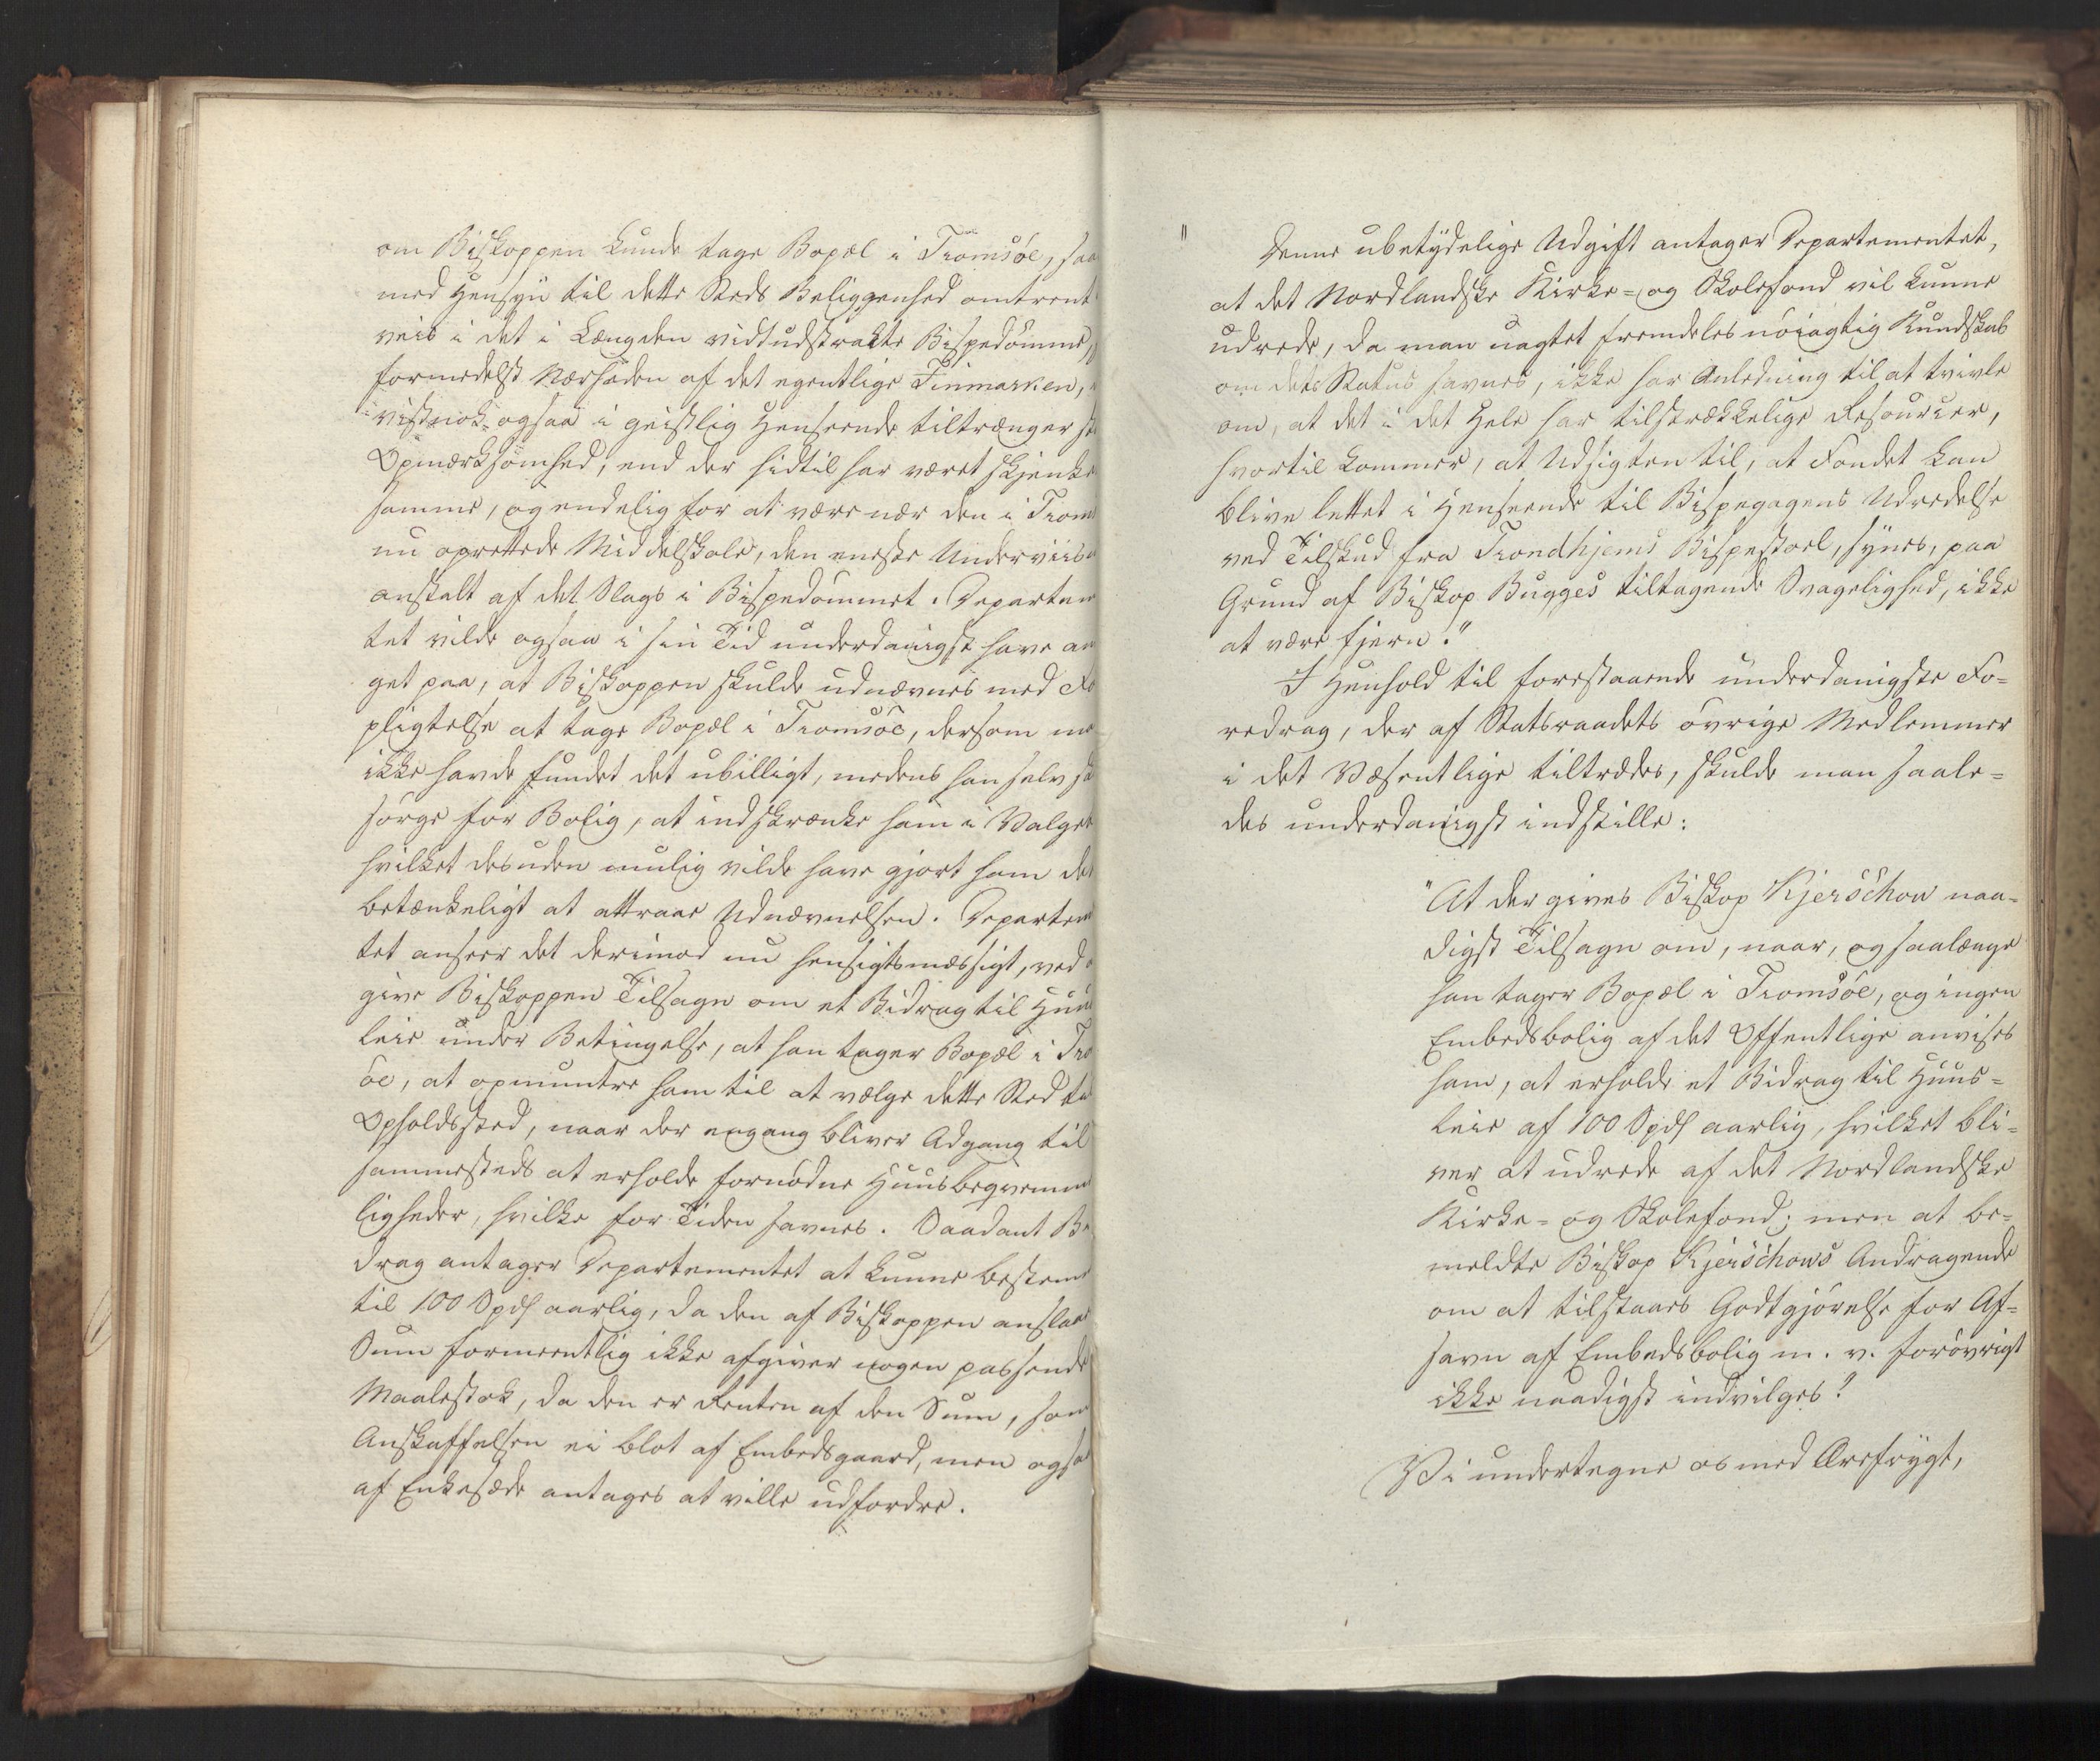 om Biskoppen kunde tage Bopæl i Tromsöe, saa
med Hensyn til dette Steds Beliggenhed omtrent
veis i det i Længden vidtudstrakte Bispedömme,
formedelst Nærheden af det egentlige Finmarken,
vistnok ogsaa i geistlig Henseende tiltrænger
Opmærksomhed, end der hidtil har været skjenke
samme, og endelig for at være nær den i Troms
nu oprettede Middelskole, den eneste Underviis
anstalt af det Slags i Bispedömmet. Departem
tet vilde ogsaa i sin Tid underdanigst have an
get paa, at Biskoppen skulde udnævnes med Fo
pligtelse at tage Bopæl i Tromsöe, dersom ma
ikke havde fundet det ubilligt, medens han selv sk
sörge for Bolig, at indskrænke ham i Valget
hvilket desuden mulig vilde have gjort ham det
betænkeligt at attraae Udnævnelsen. Departem
tet anseer det derimod nu hensigtsmæssigt, ved
give Biskoppen Tilsagn om et Bidrag til Huus
leie under Betingelse, at han tager Bopæl i Tro
öe, at opmuntre ham til at vælge dette Sted til
Opholdssted, naar der engang bliver Adgang til
sammesteds at erholde fornödne Huusbeqvemme
ligheder, hvilke for Tiden savnes. Saadant Bi
drag antager Departementet at kunne bestemme
til 100 Spdl aarlig, da den af Biskoppen anslaae
Sum formeentlig ikke afgiver nogen passende
Maalestok, da den er Renten af den Sum, som
Anskaffelsen ei blot af Embedsgaard, men ogsaa
af Enkesæde antages at ville udfordre.
" Denne ubetydelige Udgift antager Departementet,
at det Nordlandske Kirke- og Skolefond vil kunne
udrede, da man uagtet fremdeles nöiagtig Kundskab
om dets Status savnes, ikke har Anledning til at tvivle
om, at det i det Hele har tilstrækkelige Resourcer,
hvortil kommer, at Udsigten til, at Fondet kan
blive lettet i Henseende til Bispegagens Udredelse
ved Tilskud fra Trondhjems Bispestoel, synes, paa
Grund af Biskop Bugges tiltagende Svagelighed, ikke
at være fjern."
I Henhold til forestaaende underdanigste Fo-
redrag, der af Statsraadets övrige Medlemmer
i det Væsentlige tiltrædes, skulde man saale-
des underdanigst indstille:
"At der gives Biskop Kjerschow naa-
digst Tilsagn om, naar, og saalænge
han tager Bopæl i Tromsöe, og ingen
Embedsbolig af det Offentlige anvises
ham, at erholde et Bidrag til Huus-
leie af 100 Spdl aarlig, hvilket bli-
ver at udrede af det Nordlandske
Kirke- og Skolefond; men at be-
meldte Biskop Kjerschows Andragende
om at tilstaaes Godtgjörelse for Af-
savn af Embedsbolig m. v. forövrigt
ikke naadigst indvilges."
Vi undertegne os med Ærefrygt,